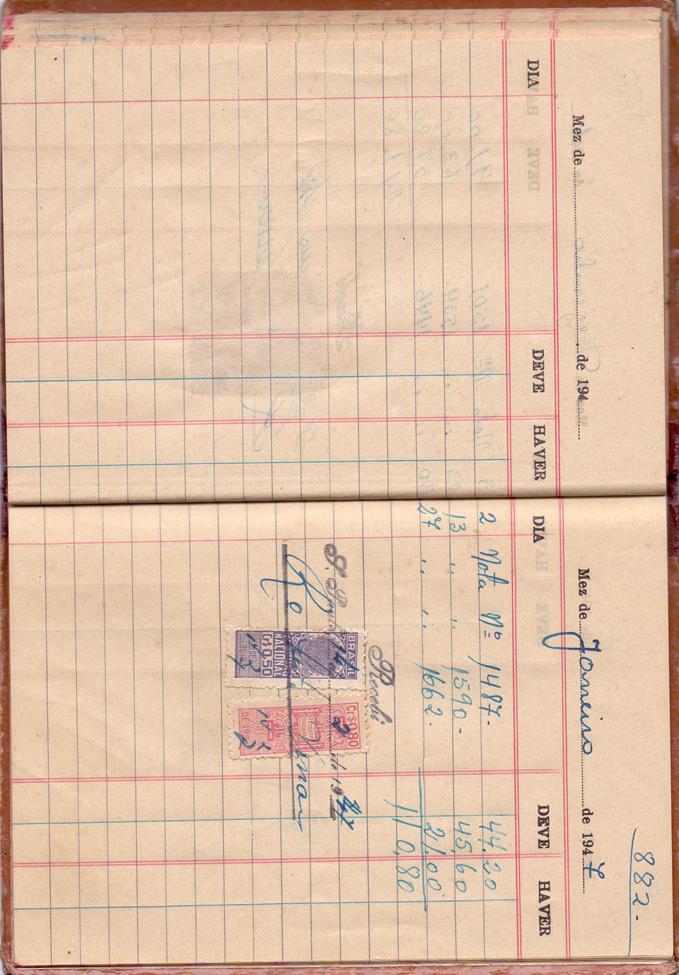 Mez de de 194
DIA DEVE HAVER
882-
Mez de Janeiro de 1947
DIA DEVE HAVER
2 Nota Nº 1487- 44,20
13 " " 1590- 45,60
27 " " 1662- 21,00
110,80
Recebi
S. Paulo, 14 2 de 1947
BRASIL
NACIONAL
Cr$0,50
Cr$0,80